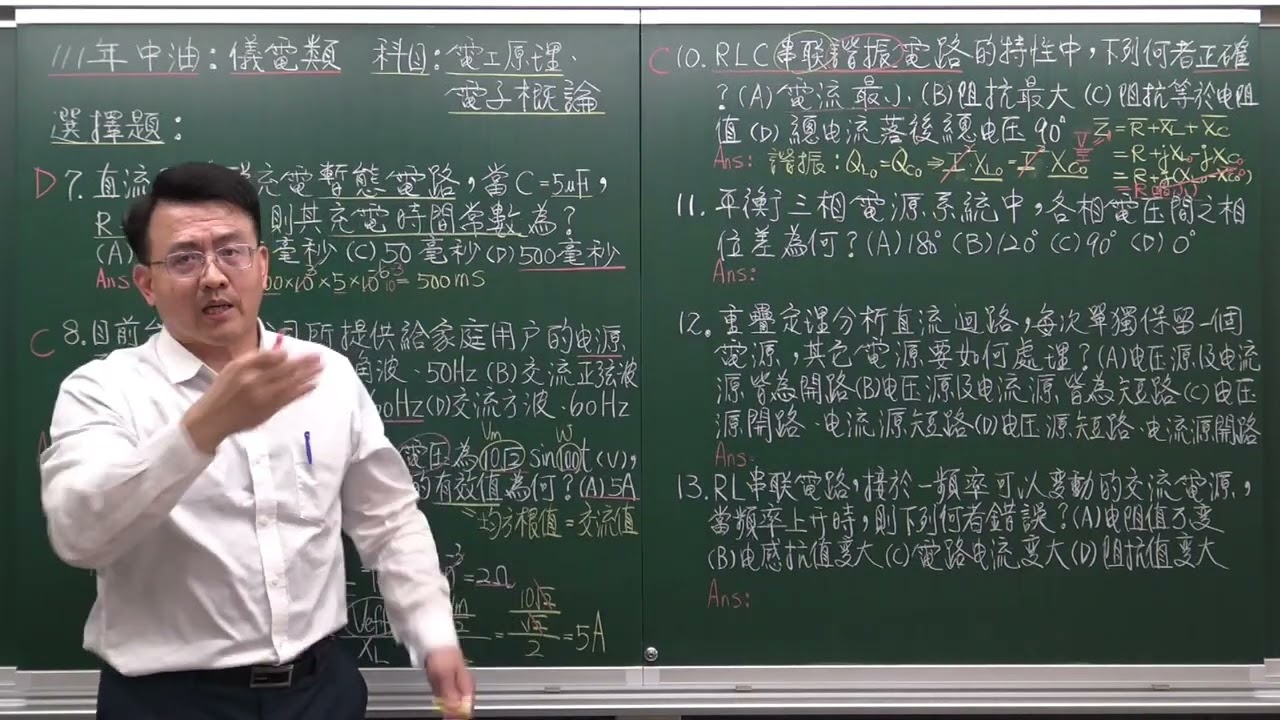 111年中油:儀電類 科目:電工原理、
電子概論
選擇題:
D 7. 直流 充電暫態電路,當C=5μF,
R 則其充電時間常數為?
(A) 毫秒(C)50毫秒(D)500毫秒
Ans 00×10³×5×10⁻⁶ = 500mS
C 8. 目前 所提供給家庭用戶的电源
角波、50Hz(B)交流正弦波
0Hz(D)交流方波、60Hz
Vm W
電压為10√2 sin100t(V),
的有效值為何?(A)5A
=均方根值=交流值
⁻³=2Ω
Veff/XL = 10√2/√2/2 = 5A
C 10. RLC串联諧振電路的特性中,下列何者正確
?(A)電流最小(B)阻抗最大(C)阻抗等於电阻
值(D)總电流落後總电压90°
Z̄=R̄+X̄L+X̄C
Ans: 諧振:QLo=QCo⇒I²XLo=I²XCo
=R+jXLo-jXCo
=R+j(XLo-XCo)
11. 平衡三相電源系統中,各相電压間之相
位差為何?(A)180°(B)120°(C)90°(D)0°
Ans:
12. 重疊定理分析直流迴路,每次單獨保留一個
電源,其它電源要如何處理?(A)电压源及电流
源皆為開路(B)电压源及电流源皆為短路(C)电压
源開路、电流源短路(D)电压源短路、电流源開路
Ans:
13. RL串联電路,接於一頻率可以变動的交流電源,
當頻率上升時,則下列何者錯誤?(A)电阻值不变
(B)电感抗值变大(C)電路电流变大(D)阻抗值变大
Ans: